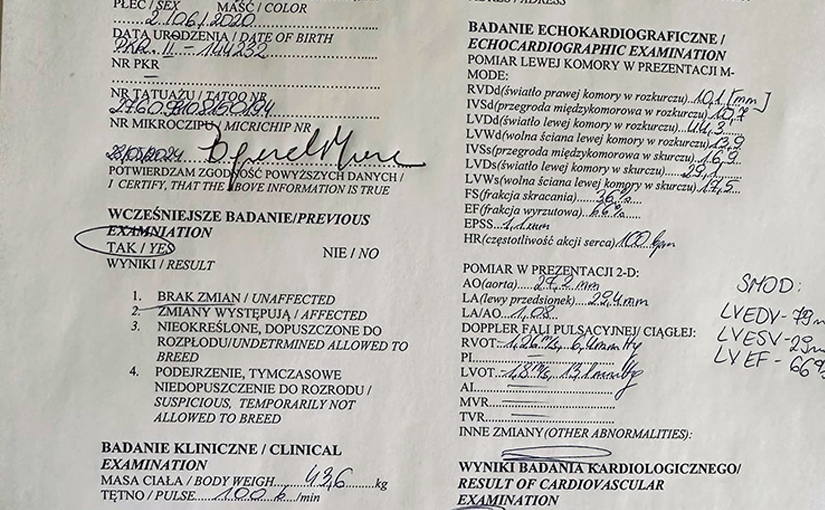 PŁEĆ / SEX MAŚĆ / COLOR
2.06.2020
DATA URODZENIA / DATE OF BIRTH
PKR. II - 144232
NR PKR
—
NR TATUAŻU / TATOO NR
NR MIKROCZIPU / MICRICHIP NR
28/05/2024
POTWIERDZAM ZGODNOŚĆ POWYŻSZYCH DANYCH /
I CERTIFY, THAT THE ABOVE INFORMATION IS TRUE
WCZEŚNIEJSZE BADANIE/PREVIOUS
EXAMNIATION
TAK / YES NIE / NO
WYNIKI / RESULT
1. BRAK ZMIAN / UNAFFECTED
2. ZMIANY WYSTĘPUJĄ / AFFECTED
3. NIEOKREŚLONE, DOPUSZCZONE DO
ROZPŁODU/UNDETRMINED ALLOWED TO
BREED
4. PODEJRZENIE, TYMCZASOWE
NIEDOPUSZCZENIE DO ROZRODU /
SUSPICIOUS, TEMPORARILY NOT
ALLOWED TO BREED
BADANIE KLINICZNE / CLINICAL
EXAMINATION
MASA CIAŁA / BODY WEIGH 43,6 kg
TĘTNO / PULSE 100 b /min
ADRES / ADRESS
BADANIE ECHOKARDIOGRAFICZNE /
ECHOCARDIOGRAPHIC EXAMINATION
POMIAR LEWEJ KOMORY W PREZENTACJI M-
MODE:
RVDd(światło prawej komory w rozkurczu) 10,1 [mm]
IVSd(przegroda międzykomorowa w rozkurczu) 10,7
LVDd(światło lewej komory w rozkurczu) 44,3
LVWd(wolna ściana lewej komory w rozkurczu) 13,9
IVSs(przegroda międzykomorowa w skurczu) 16,9
LVDs(światło lewej komory w skurczu) 29,1
LVWs(wolna ściana lewej komory w skurczu) 17,5
FS(frakcja skracania) 36%
EF(frakcja wyrzutowa) 66%
EPSS 1,1mm
HR(częstotliwość akcji serca) 100 bpm
POMIAR W PREZENTACJI 2-D:
AO(aorta) 27,2 mm
LA(lewy przedsionek) 29,4mm
LA/AO 1,08
DOPPLER FALI PULSACYJNEJ/ CIĄGŁEJ:
RVOT: 1,26m/s, 6,4mmHg
PI —
LVOT 1,8m/s, 13,1mmHg
AI —
MVR —
TVR —
INNE ZMIANY(OTHER ABNORMALITIES):
WYNIKI BADANIA KARDIOLOGICZNEGO/
RESULT OF CARDIOVASCULAR
EXAMINATION
SMOD:
LVEDV - 79m
LVESV - 29m
LVEF - 66%